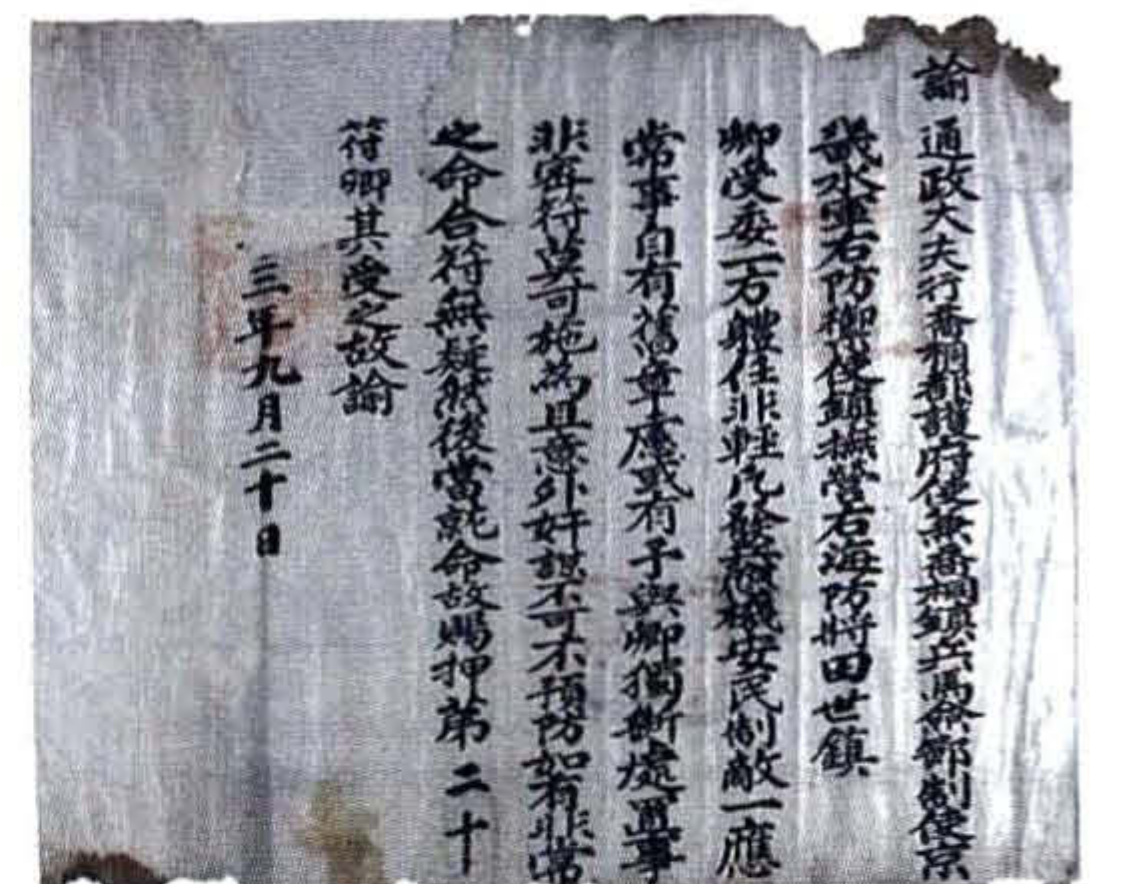 諭 通政大夫行喬桐都護府使兼喬桐鎮兵馬僉節制使京
畿水軍右防禦使鎮撫營右海防將田世鎮
卿受委一方體任非輕凡發兵應機安民制敵一應
常事自有舊章慮或有予與卿獨斷處置事
非密符莫可施爲且意外奸謀不可不預防如有非常
之命合符無疑然後當就命故賜押第二十
符卿其受之故諭
三年九月二十日